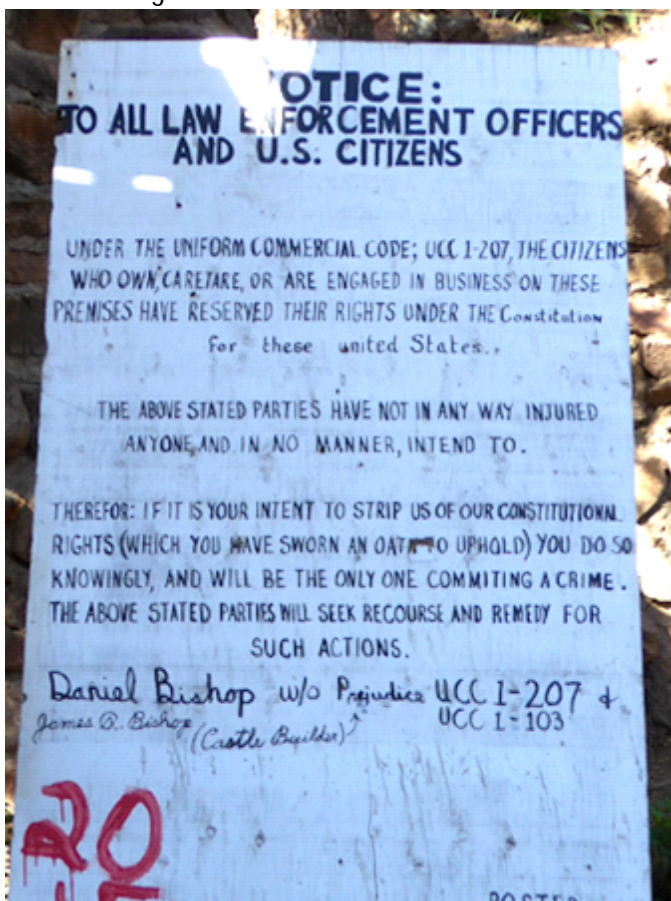 NOTICE:
TO ALL LAW ENFORCEMENT OFFICERS
AND U.S. CITIZENS
UNDER THE UNIFORM COMMERCIAL CODE; UCC 1-207, THE CITIZENS
WHO OWN, CARETAKE, OR ARE ENGAGED IN BUSINESS ON THESE
PREMISES HAVE RESERVED THEIR RIGHTS UNDER THE Constitution
for these united States..
THE ABOVE STATED PARTIES HAVE NOT IN ANY WAY INJURED
ANYONE, AND IN NO MANNER, INTEND TO.
THEREFOR: IF IT IS YOUR INTENT TO STRIP US OF OUR CONSTITUTIONAL
RIGHTS (WHICH YOU HAVE SWORN AN OATH TO UPHOLD) YOU DO SO
KNOWINGLY, AND WILL BE THE ONLY ONE COMMITING A CRIME.
THE ABOVE STATED PARTIES WILL SEEK RECOURSE AND REMEDY FOR
SUCH ACTIONS.
Daniel Bishop w/o Prejudice UCC 1-207 &
James R. Bishop (Castle Builder) UCC 1-103
20
POSTED